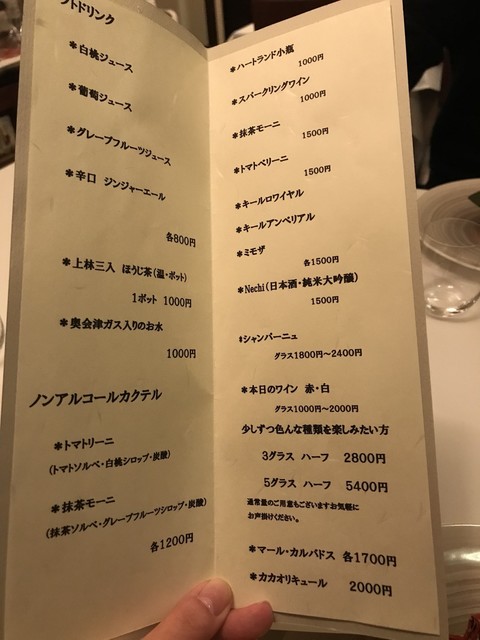 フトドリンク
＊白桃ジュース
＊葡萄ジュース
＊グレープフルーツジュース
＊辛口 ジンジャーエール
各800円
＊上林三入 ほうじ茶(温・ポット)
1ポット 1000円
＊奥会津ガス入りのお水
1000円
ノンアルコールカクテル
＊トマトリーニ
(トマトソルベ・白桃シロップ・炭酸)
＊抹茶モーニ
(抹茶ソルベ・グレープフルーツシロップ・炭酸)
各1200円
＊ハートランド小瓶
1000円
＊スパークリングワイン
1000円
＊抹茶モーニ
1500円
＊トマトベリーニ
1500円
＊キールロワイヤル
＊キールアンペリアル
＊ミモザ
各1500円
＊Nechi(日本酒・純米大吟醸)
1500円
＊シャンパーニュ
グラス1800円〜2400円
＊本日のワイン 赤・白
グラス1000円〜2000円
少しずつ色んな種類を楽しみたい方
3グラス ハーフ 2800円
5グラス ハーフ 5400円
通常量のご用意もございますお気軽に
お声掛けください。
＊マール・カルバドス 各1700円
＊カカオリキュール 2000円